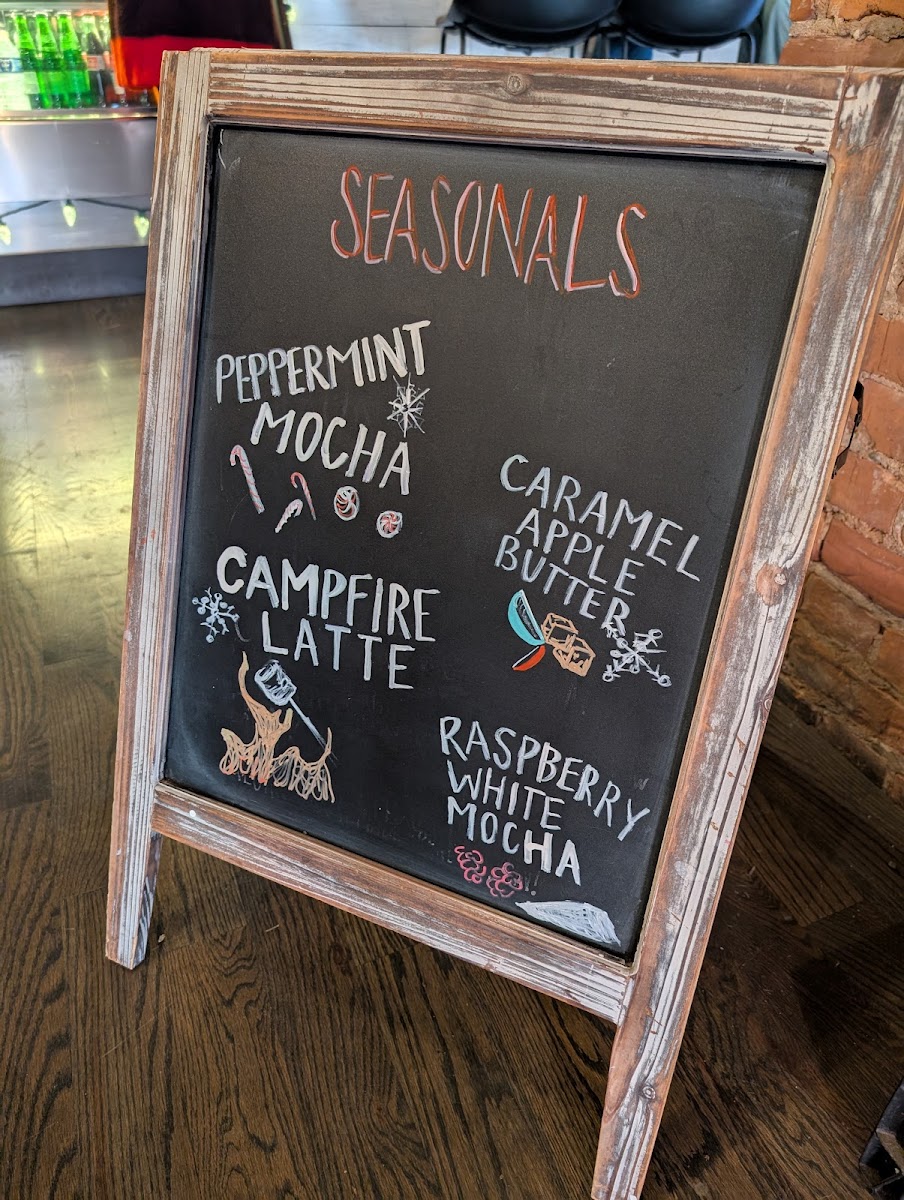 SEASONALS
PEPPERMINT
MOCHA
CAMPFIRE
LATTE
CARAMEL
APPLE
BUTTER
RASPBERRY
WHITE
MOCHA